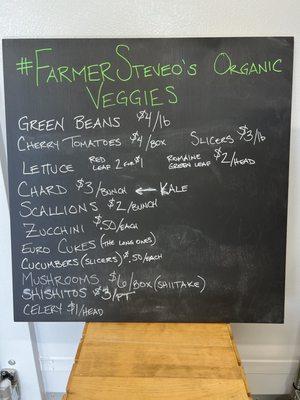 #FarmerSteveo's Organic
Veggies
Green Beans $4/lb
Cherry Tomatoes $4/box Slicers $3/lb
Lettuce Red Leaf 2 for $1 Romaine Green Leaf $2/head
Chard $3/bunch ← Kale
Scallions $2/bunch
Zucchini $.50/each
Euro Cukes (the long ones)
Cucumbers (slicers) $.50/each
Mushrooms $6/box (shiitake)
Shishitos $3/pt
Celery $1/head